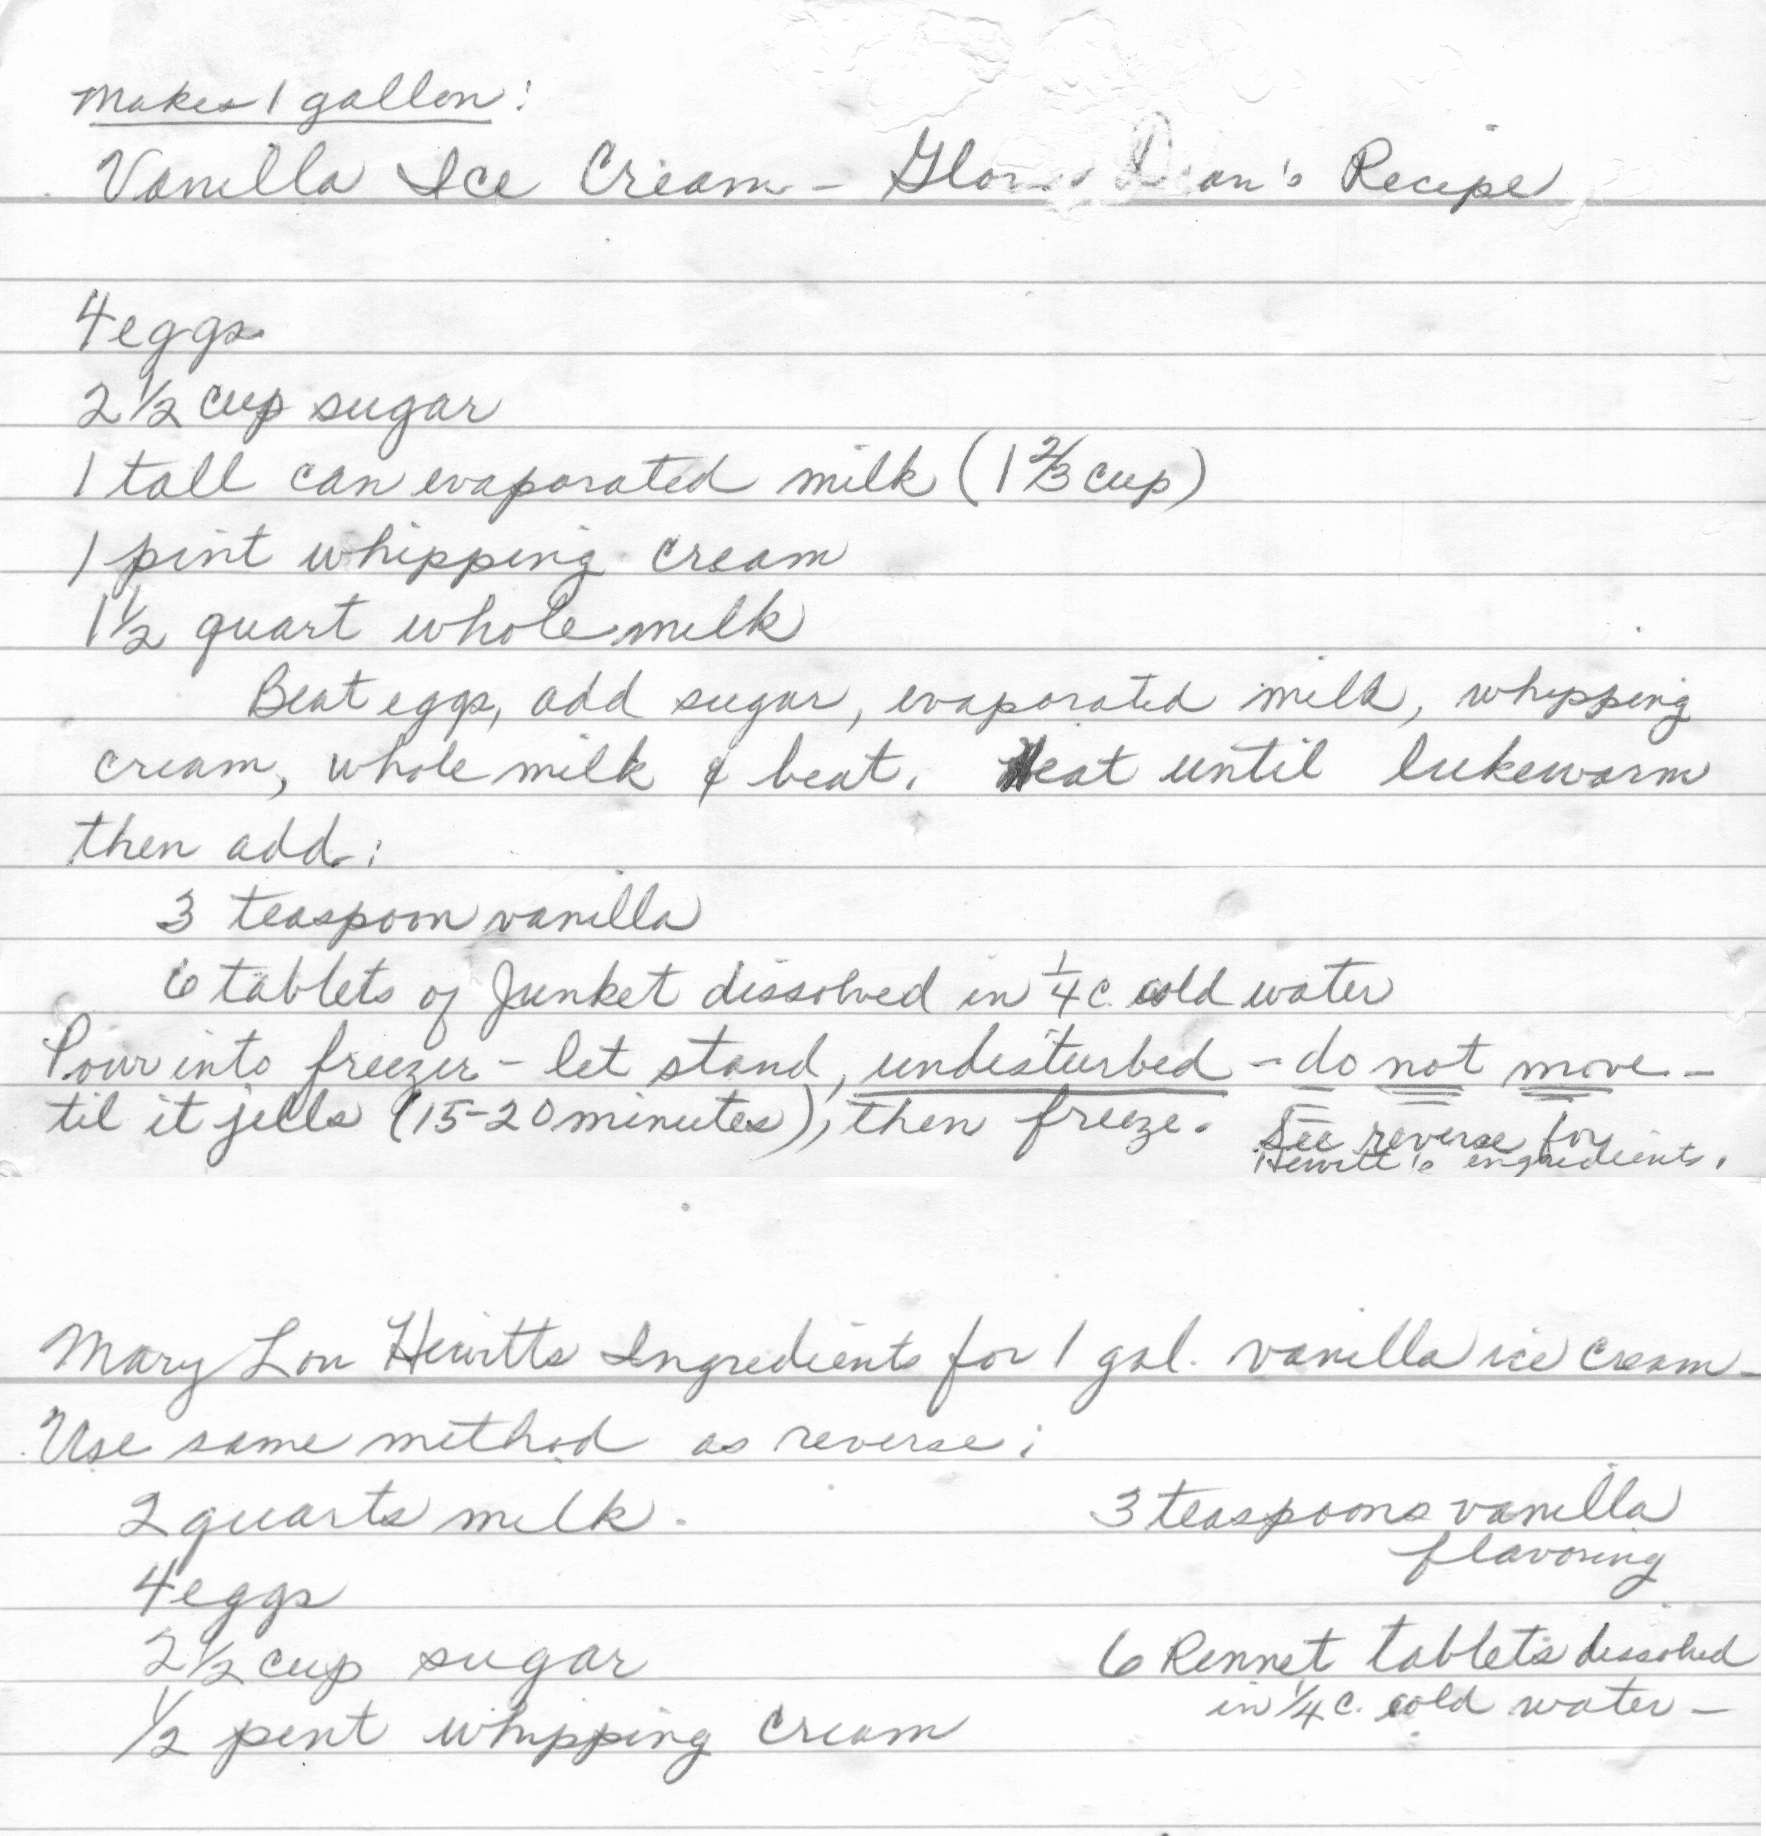 Makes 1 gallon:
Vanilla Ice Cream - Dean's Recipe
4 eggs
2 1/2 cup sugar
1 tall can evaporated milk (1 2/3 cup)
1 pint whipping cream
1 1/2 quart whole milk
Beat eggs, add sugar, evaporated milk, whipping
cream, whole milk & beat. Heat until lukewarm
then add:
3 teaspoon vanilla
6 tablets of Junket dissolved in 1/4 c. cold water
Pour into freezer - let stand, undisturbed - do not move -
til it jells (15-20 minutes), then freeze. See reverse for
Hewitt's ingredients.
Mary Lou Hewitts Ingredients for 1 gal. vanilla ice cream -
Use same method as reverse:
2 quarts milk.
4 eggs
2 1/2 cup sugar
1/2 pint whipping cream
3 teaspoons vanilla
flavoring
6 Rennet tablets dissolved
in 1/4 c. cold water -